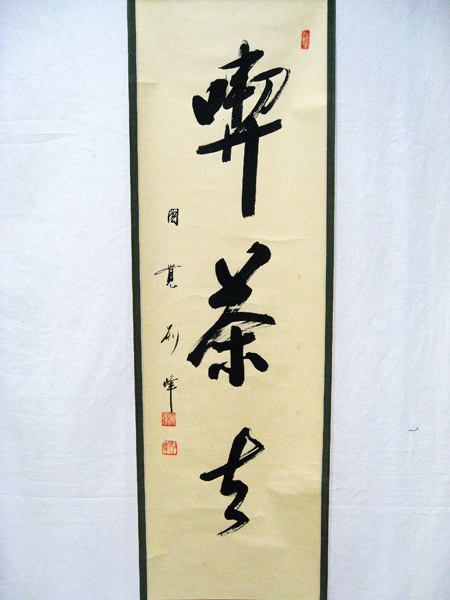 喫茶去
圓覚別峰